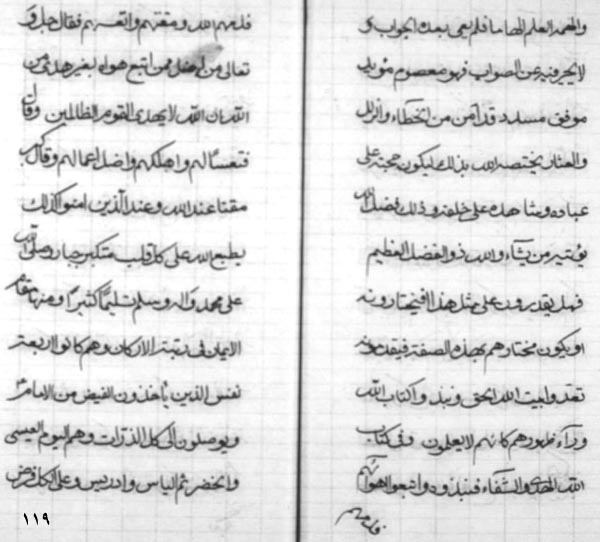 والهمه العلم الهاما فلم يعى بعده الجواب و
لا يحير فيه عن الصواب فهو معصوم مؤيد
موفق مسدد قد آمن من الخطاء والزلل
والعثار يختصه الله بذلك ليكون حجته على
عباده وشاهده على خلقه وذلك فضل الله
يؤتيه من يشاء والله ذو الفضل العظيم
فهل يقدرون على مثل هذا فيختارونه
او يكون مختارهم بهذه الصفة فيقدمونه
تعدوا بيت الله الحق ونبذوا كتاب الله
وراء ظهورهم كانهم لا يعلمون وفى كتاب
الله الهدى والشفاء فنبذوه واتبعوا اهوائهم
فذمهم
فذمهم الله ومقتهم واتعسهم فقال جل و
تعالى ومن اضل ممن اتبع هواه بغير هدى من
الله ان الله لا يهدى القوم الظالمين وقال
فتعسا لهم واضل اعمالهم وقال كبر
مقتا عند الله وعند الذين امنوا كذلك
يطبع الله على كل قلب متكبر جبار وصلى الله
على محمد واله وسلم تسليما كثيرا ومنها مقام
الايمان فى رتبة الاركان وهم كانوا اربعة
نفس الذين ياخذون الفيض من الامام
ويوصلون الى كل الذرات وهم اليوم العيسى
والخضر ثم الياس وادريس وعلى الكل فرض
١١٩